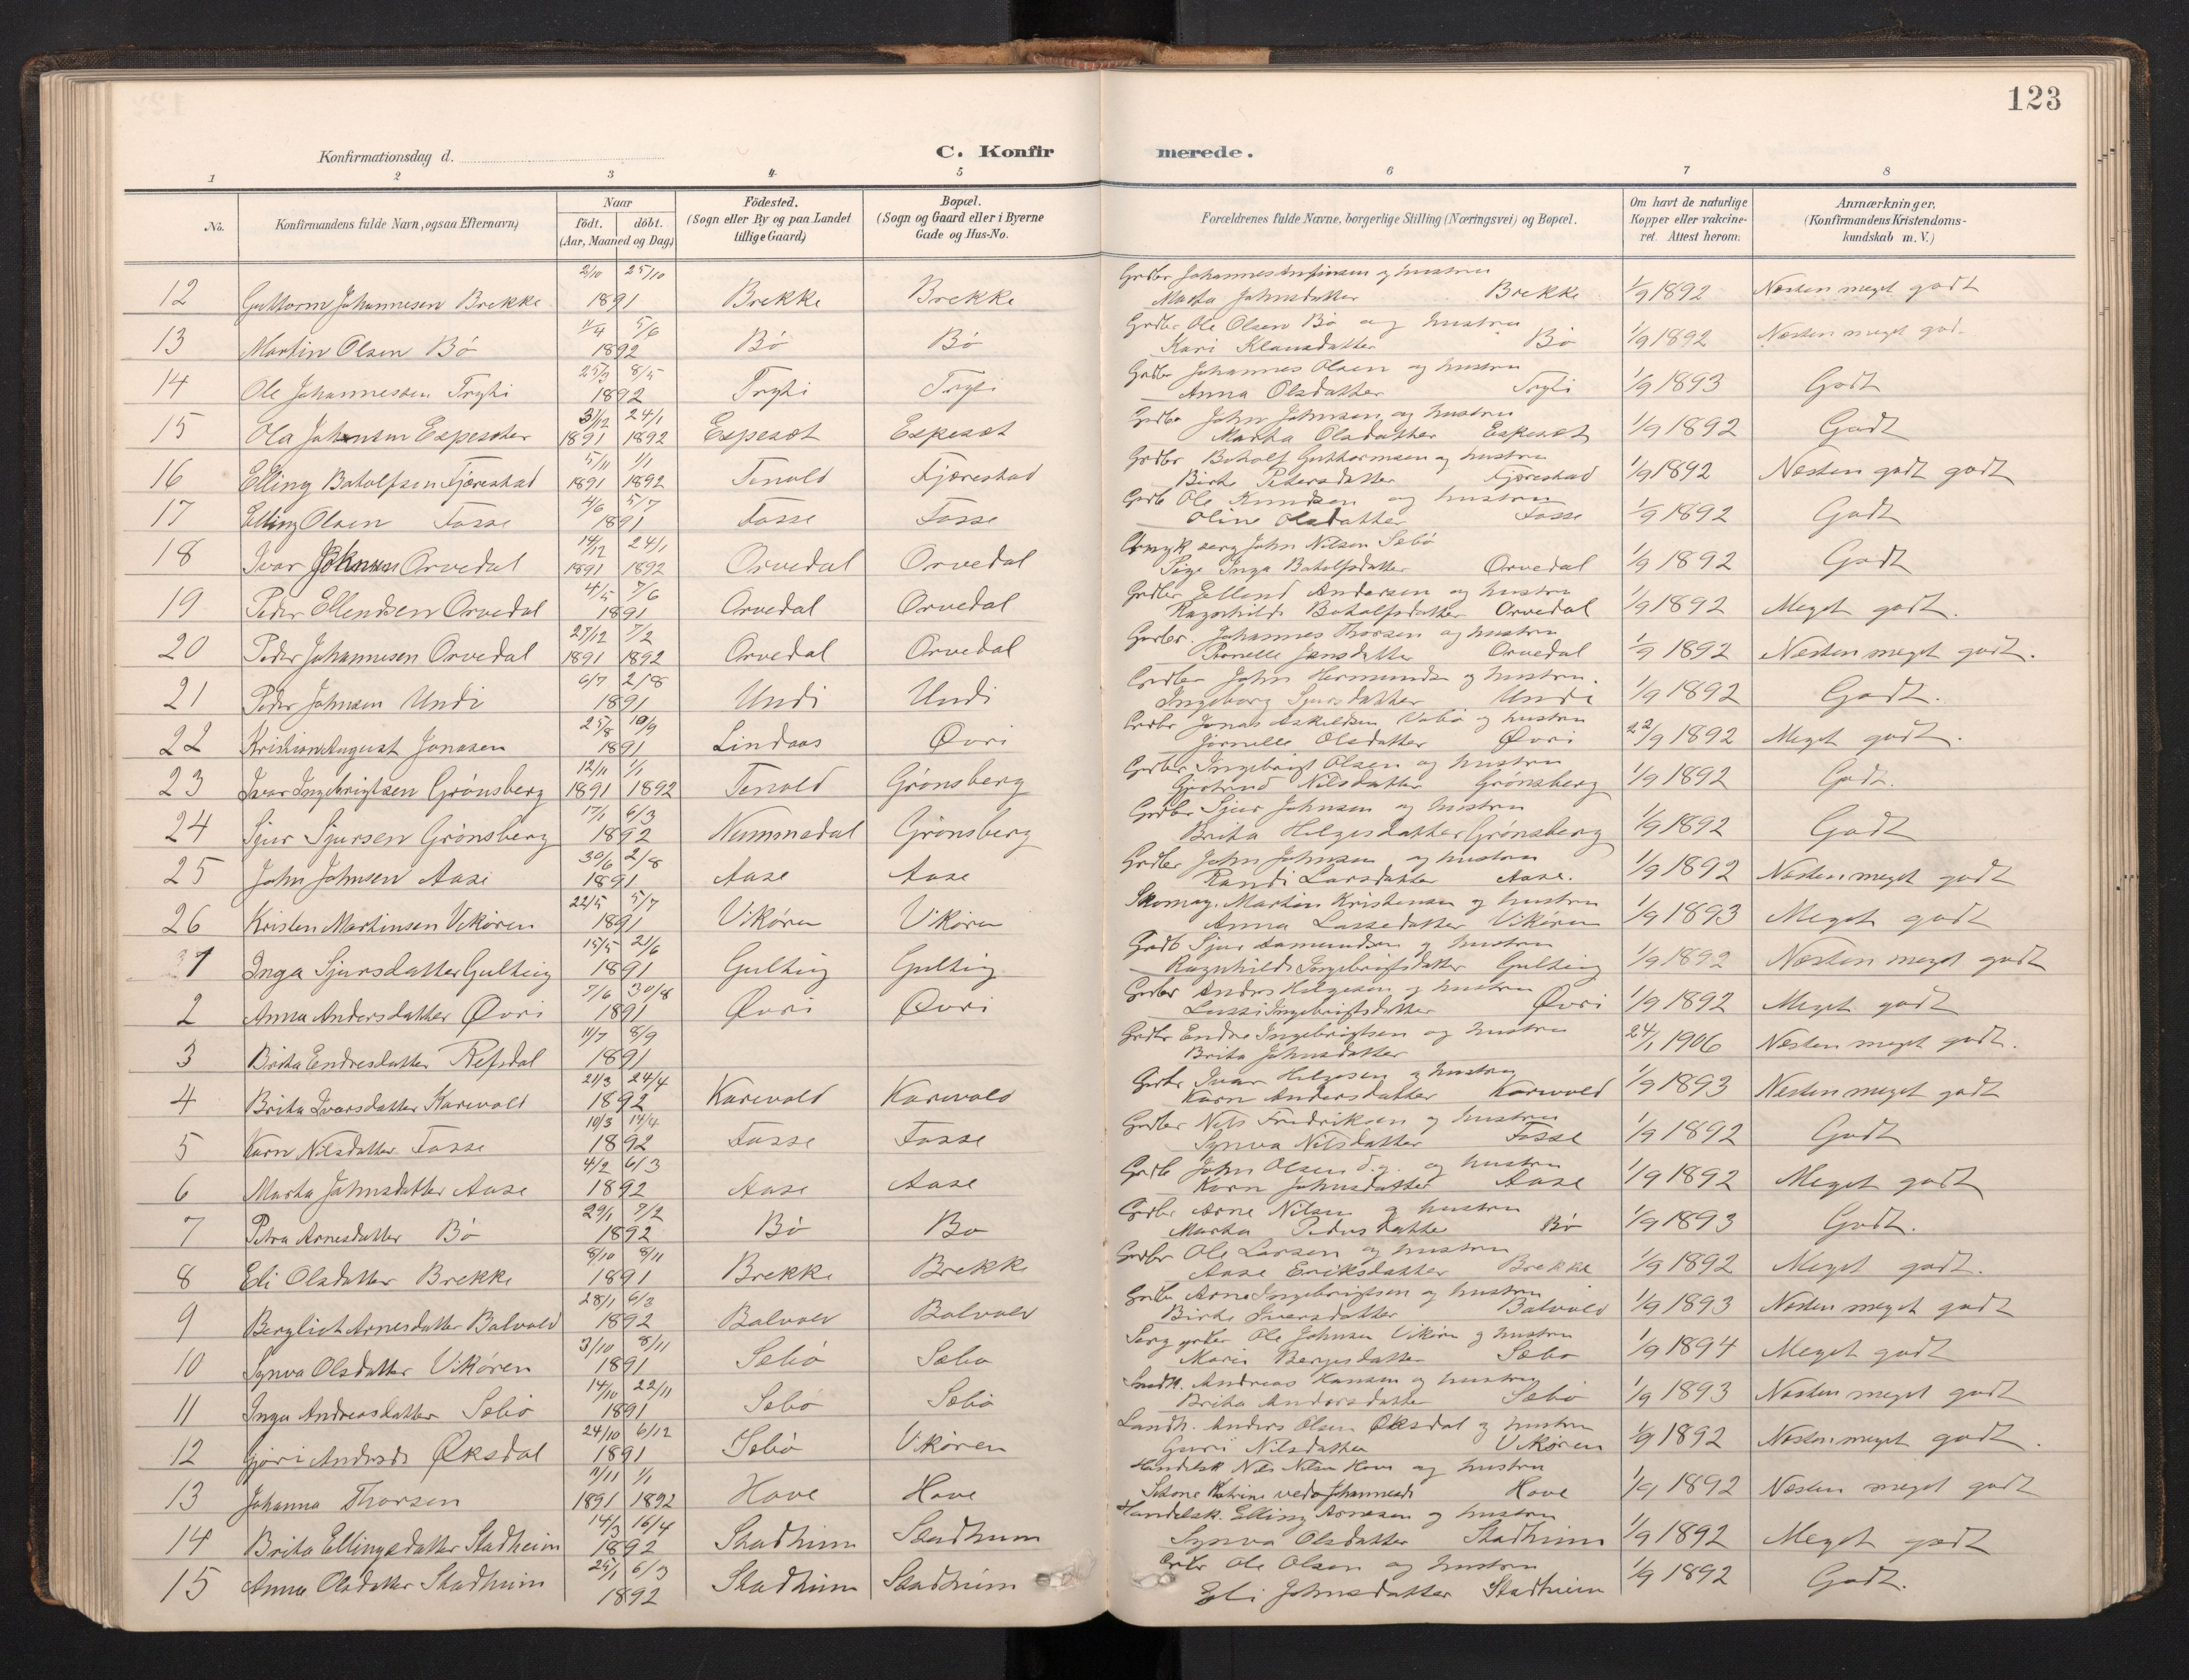 123
Konfirmationsdag d.
C. Konfirmerede.
1 2 3 4 5 6 7 8
No. Konfirmandens fulde Navn, ogsaa Efternavn) Naar födt. döbt. (Aar, Maaned og Dag) Födested. (Sogn eller By og paa Landet tillige Gaard) Bopæl. (Sogn og Gaard eller i Byerne Gade og Hus-No. Forældrenes fulde Navne, borgerlige Stilling (Næringsvei) og Bopæl. Om havt de naturlige Kopper eller vakcineret. Attest herom. Anmærkninger. (Konfirmandens Kristendomskundskab m. V.)
2/10 25/10 Grdbr Johannes og hustru
12 Guttorm Johannesen Brekke 1891 Brekke Brekke Marta Johnsdatter Brekke 1/9 1892 Næsten meget godt
1/4 5/6 Grdbr Ole Olsen Bö og hustru
13 Martin Olsen Bö 1892 Bö Bö Kari Klausdatter Bö 1/9 1892 Næsten meget god.
8/5 Grdbr Johannes Olsen og hustru
14 Ole Johannessen Tryti 1892 Tryti Tryti Anna Olsdatter Tryti 1/9 1893 Godt
31/12 24/1 Grdbr John Johnsen og hustru
15 Ola Johnsen 1891 1892 Espeset Espeset Marta Olsdatter Espeset 1/9 1892 Godt
5/11 1/1 Grdbr Botolf Guttormsen og hustru
16 Elling Botolfsen Fjærestad 1891 1892 Tenold Fjærestad Birte Petersdatter Fjærestad 1/9 1892 Næsten godt godt
4/6 5/7 Grdb Ole Knudsen og hustru
17 Elling Olsen Fosse 1891 Fosse Fosse Oline Olsdatter Fosse 1/9 1892 Godt
14/12 24/1 serg John Nilsen Sebö
18 Ivar Johnsen Orvedal 1891 1892 Orvedal Orvedal Pige Inga Botolfsdatter Orvedal 1/9 1892 Godt
4/5 7/6 Grdbr Ellend Andersen og hustru
19 Peder Ellendsen Orvedal 1891 Orvedal Orvedal Ragnhilde Botolfsdatter Orvedal 1/9 1892 Meget godt.
27/12 7/2 Grdbr. Johannes Thorsen og hustru
20 Peder Johannesen Orvedal 1891 1892 Orvedal Orvedal Pernelle Jensdatter Orvedal 1/9 1892 Næsten meget godt.
6/7 2/8 Grdbr John Hermundsen og hustru.
21 Peder Johnsen Undi 1891 Undi Undi Ingeborg Sjursdatter Undi 1/9 1892 Godt.
25/8 19/9 Grdbr Jonas Askildsen og hustru
22 Kristian August Jonasen 1891 Lindaas Övri Jörnelle Olsdatter Övri 22/9 1892 Meget godt.
12/11 1/1 Grdbr Ingebrigt Olsen og hustru
23 Ivar Ingebrigtsen Grönsberg 1891 1892 Tenold Grönsberg Gjertrud Nilsdatter Grönsberg 1/9 1892 Godt.
17/1 6/3 Grdbr Sjur Johnsen og hustru
24 Sjur Sjursen Grönsberg 1892 Nummedal Grönsberg Brita Helgesdatter Grönsberg 1/9 1892 Godt
30/6 2/8 Grdbr John Johnsen og hustru
25 John Johnsen Aase 1891 Aase Aase Randi Larsdatter Aase. 1/9 1892 Næsten meget godt
22/5 5/7 Skomag. Martin Kristensen og hustru
26 Kristen Martinsen Vikören 1891 Vikören Vikören Anna Lassedatter Vikören 1/9 1893 Meget godt
15/5 21/6 Grdb Sjur Aamundsen og hustru
1 Inga Sjursdatter Gulteig 1891 Gulteig Gulteig Ragnhilde Ingebrigtsdatter Gulteig 1/9 1892 Næsten meget godt
7/6 30/8 Grdbr Anders Helgesen og hustru
2 Anna Andersdatter Övri 1891 Övri Övri Lussi Ingebrigtsdatter Övri 1/9 1892 Meget godt
11/7 8/9 Grdbr Endre Ingebrigtsen og hustru
3 Brita Endresdatter Refsdal 1891 Brita Johnsdatter 24/1 1906 Næsten meget godt.
21/3 24/4 Grdbr Ivar Helgesen og hustru
4 Brita Ivarsdatter Karevold 1892 Karevold Karevold Karn Andersdatter Karevold 1/9 1893 Næsten meget godt
10/3 14/4 Grdbr Nels Fredriksen og hustru
5 Karn Nilsdatter Fosse 1892 Fosse Fosse Synva Nilsdatter Fosse 1/9 1892 Godt
4/2 6/3 Grdb John Olsen d.y. og hustru
6 Marta Johnsdatter Aase 1892 Aase Aase Karn Johnsdatter Aase 1/9 1892 Meget godt
29/1 7/2 Grdbr Arne Nilsen og hustru
7 Petra Arnesdatter Bö 1892 Bö Bo Marta Pedersdatter Bö 1/9 1893 Godt.
8/10 8/11 Grdbr Ole Larsen og hustru
8 Eli Olsdatter Brekke 1891 Brekke Brekke Aase Eriksdatter Brekke 1/9 1892 Meget godt.
28/1 6/3 Grdbr Arne Ingebrigtsen og hustru
9 Berglist Arnesdatter Bolvold 1892 Bolvold Bolvold Birte Iversdatter Bolvold 1/9 1893 Næsten meget godt
3/10 8/11 Serg Ole Johnsen Vikören og hustru
10 Synva Olsdatter Vikören 1891 Sebö Sæbo Mari Bergesdatter Sæbo 1/9 1894 Meget godt
14/10 22/11 Andreas Hansen og hustru
11 Inga Andreasdatter Sebö 1891 Sebö Sebö Brita Andersdatter Sebö 1/9 1893 Næsten meget godt
24/10 6/12 Landh. Anders Olsen Öksdal og hustru
12 Gjöri Andersdr Öksdal 1891 Sebö Vikören Guri Nilsdatter Vikören 1/9 1892 Næsten meget godt.
1/1 Handelsk Nils Nilsen Hove og hustru
13 Johanna Thorsen 1891 1892 Hove Hove Katrine Johannesdr Hove 1/9 1892 Næsten meget godt
14/3 16/4 Handelsk. Elling Arnesen og hustru
14 Brita Ellingsdatter Stadheim 1892 Stadheim Stadheim Synva Olsdatter Stadheim 1/9 1892 Meget godt
25/1 6/3 Grdbr Ole Olsen og hustru
15 Anna Olsdatter Stadheim 1892 Stadheim Stadheim Eli Johnsdatter Stadheim 1/9 1892 Godt.